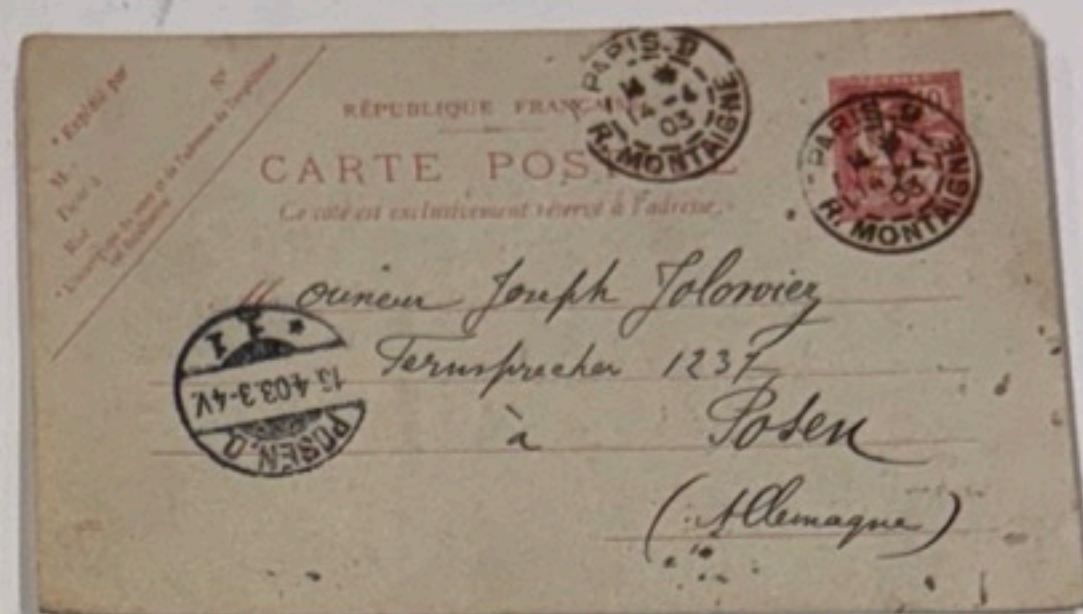 * Expédié par
M.
Dem^t à
Rue
N°
RÉPUBLIQUE FRANÇAISE
CARTE POSTALE
Ce côté est exclusivement réservé à l'adresse.
PARIS. 9
14 - 4
03
R. MONTAIGNE
10
PARIS. 9
03
R. MONTAIGNE
Monsieur Joseph Jolowicz
Fernsprecher 1237
à Posen
(Allemagne)
POSEN. O
15.4.03.3-4V.
* 1 1